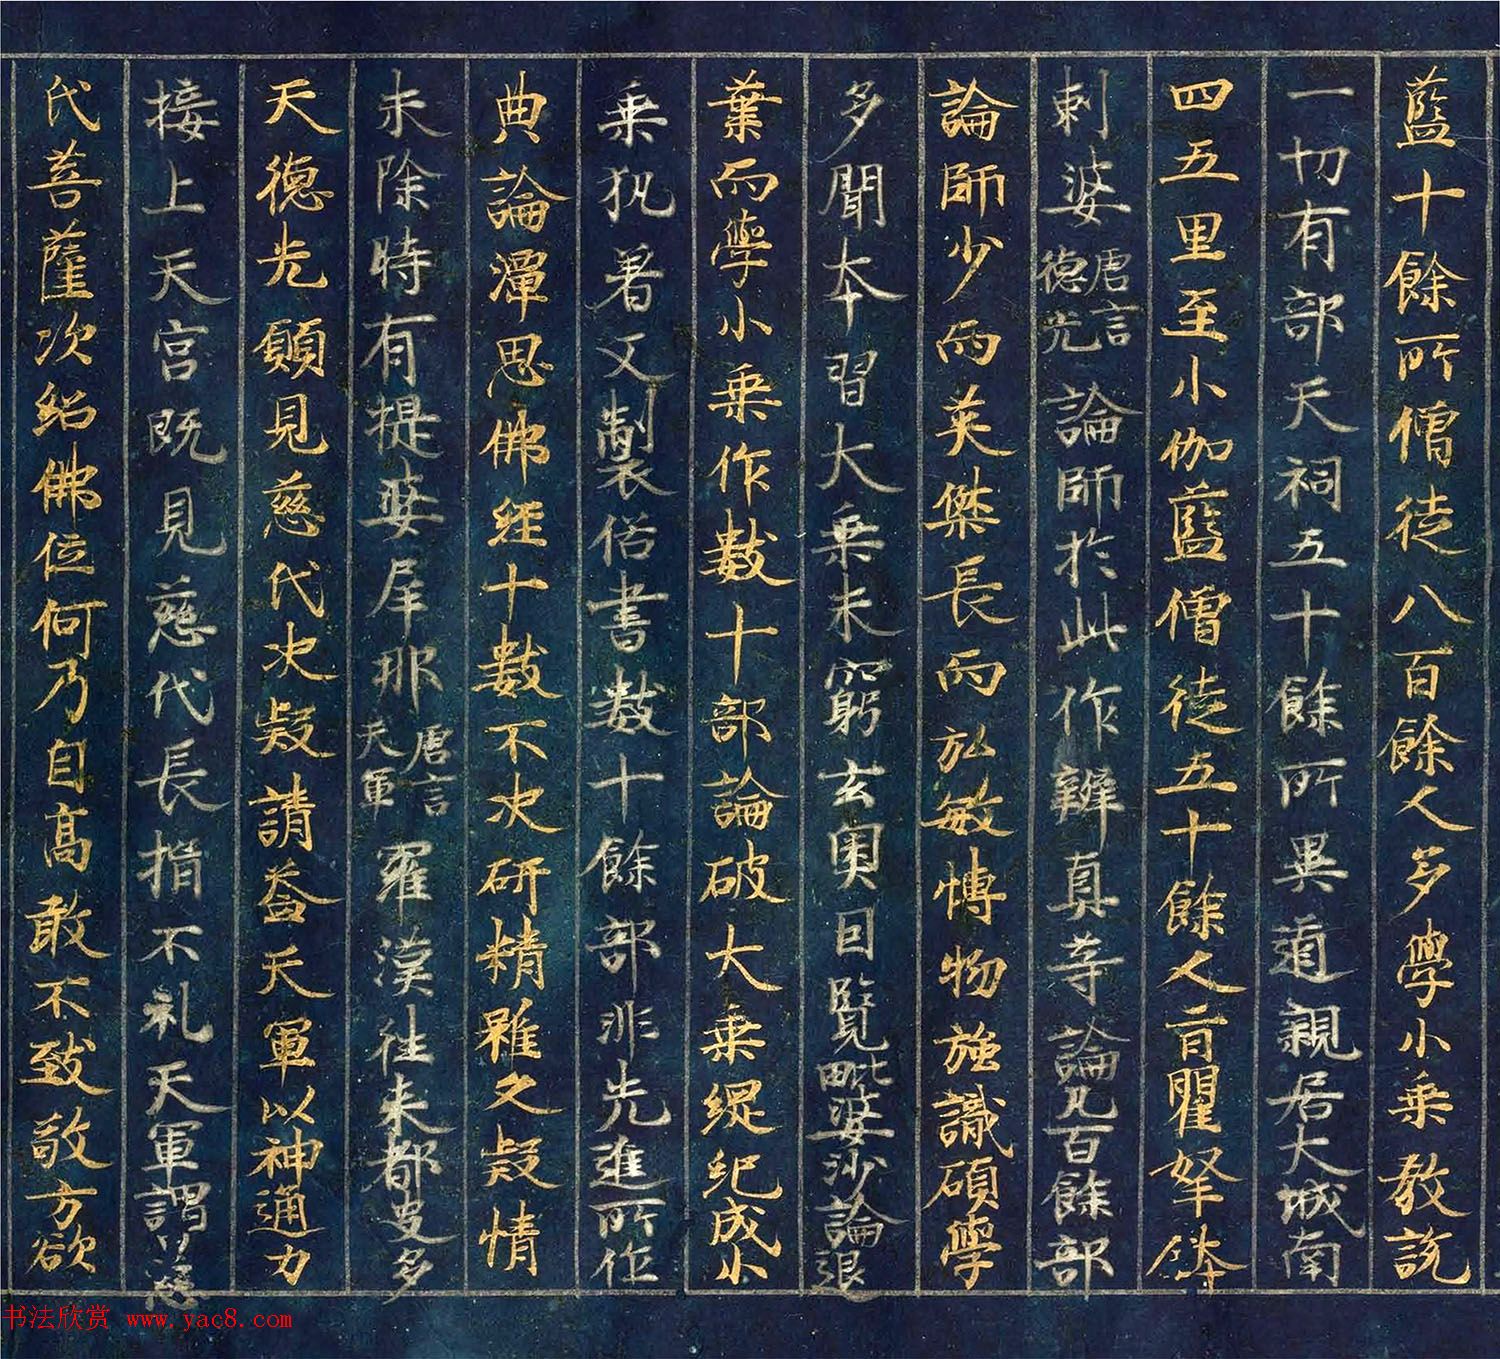 藍十餘所僧徒八百餘人多學小乘教説
一切有部天祠五十餘所異道親居大城南
四五里至小伽藍僧徒五十餘人昔瞿拏鉢
剌婆唐言德光論師於此作辯真等論凡百餘部
論師少而英傑長而弘敏博物強識碩學
多聞本習大乘未窮玄奧因覽毗婆沙論退
業而學小乘作數十部論破大乘綱紀成小
乘執著又製俗書數十餘部非先進所作
典論潭思佛經十數不決研精雖久疑情
未除時有提婆犀那唐言天軍羅漢往來都史多
天德光願見慈氏決疑請益天軍以神通力
接上天宮既見慈氏長揖不礼天軍謂曰慈
氏菩薩次紹佛位何乃自高敢不致敬方欲
书法欣赏 www.yac8.com